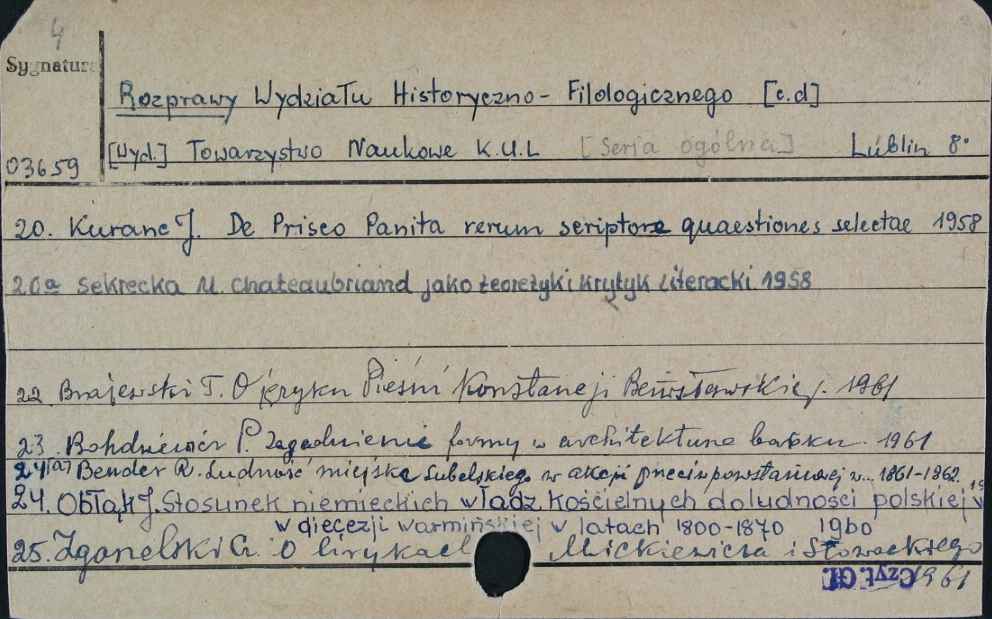 4
Sygnatura
Rozprawy Wydziału Historyczno- Filologicznego [c.d]
03659
[Wyd.] Towarzystwo Naukowe K.U.L [Seria ogólna] Lublin 8°
20. Kuranc J. De Prisco Panita rerum scriptore quaestiones selectae 1958
20a Sekrecka M. Chateaubriand jako teoretyk i krytyk literacki 1958
22 Brajerski T. O języku Pieśni Konstancji 1961
23. Bohdziewicz P. Zagadnienie formy w architekturze baroku. 1961
24[a] Bender R. Ludność miejska Lubelskiego w akcji przedpowstaniowej w.. 1861-1862.
24. Obłąk J. Stosunek niemieckich władz kościelnych do ludności polskiej
w diecezji warmińskiej w latach 1800-1870 1960
25. Zgorzelski Cz. O lirykach Mickiewicza i Słowackiego
1961
Czyt. Gł.